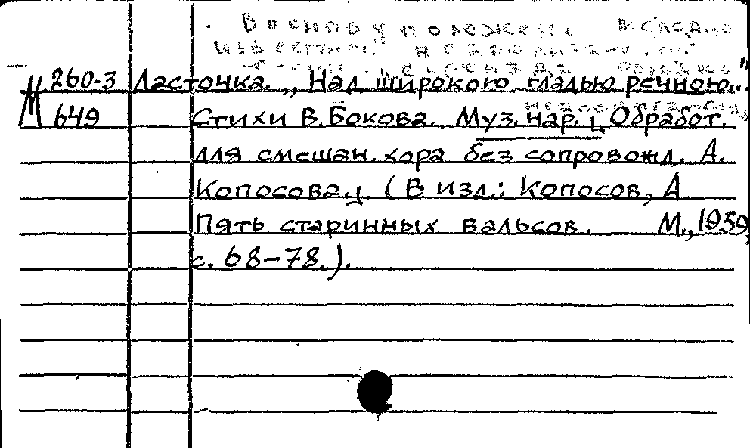 М 260-3 Ласточка. „Над широкого гладью речною..."
649 Стихи В. Бокова. Муз. нар. ; Обработ.
для смешан. хора без сопровожд. А.
Копосова.; (В изд.: Копосов, А
Пять старинных вальсов. М., 1959,
с. 68–78.).